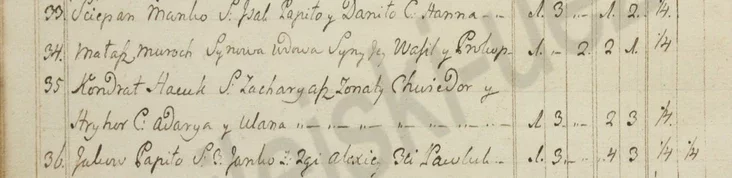 33. Sciepan Manko S. Jsal Papito y Daniło C. Hanna - - 1. 3 - - 1. 2. 1/4.
34. Matasz Muroch Synowa wdowa Syny Jey Wasil y Prokop - 1. - 2. 2 1. 1/4
35 Kondrat Hacuk S: Zacharyasz Zonaty Chwiedor y
Hryhor C: Adarya y Ulana " - " - " - " - " - 1. 3 - - 2 3 1/4.
36. Jakow Papito S. 3. Janko 2gi Alexiey 3ci Pawluk - 1. 3 - - 4 3 1/4 1/4